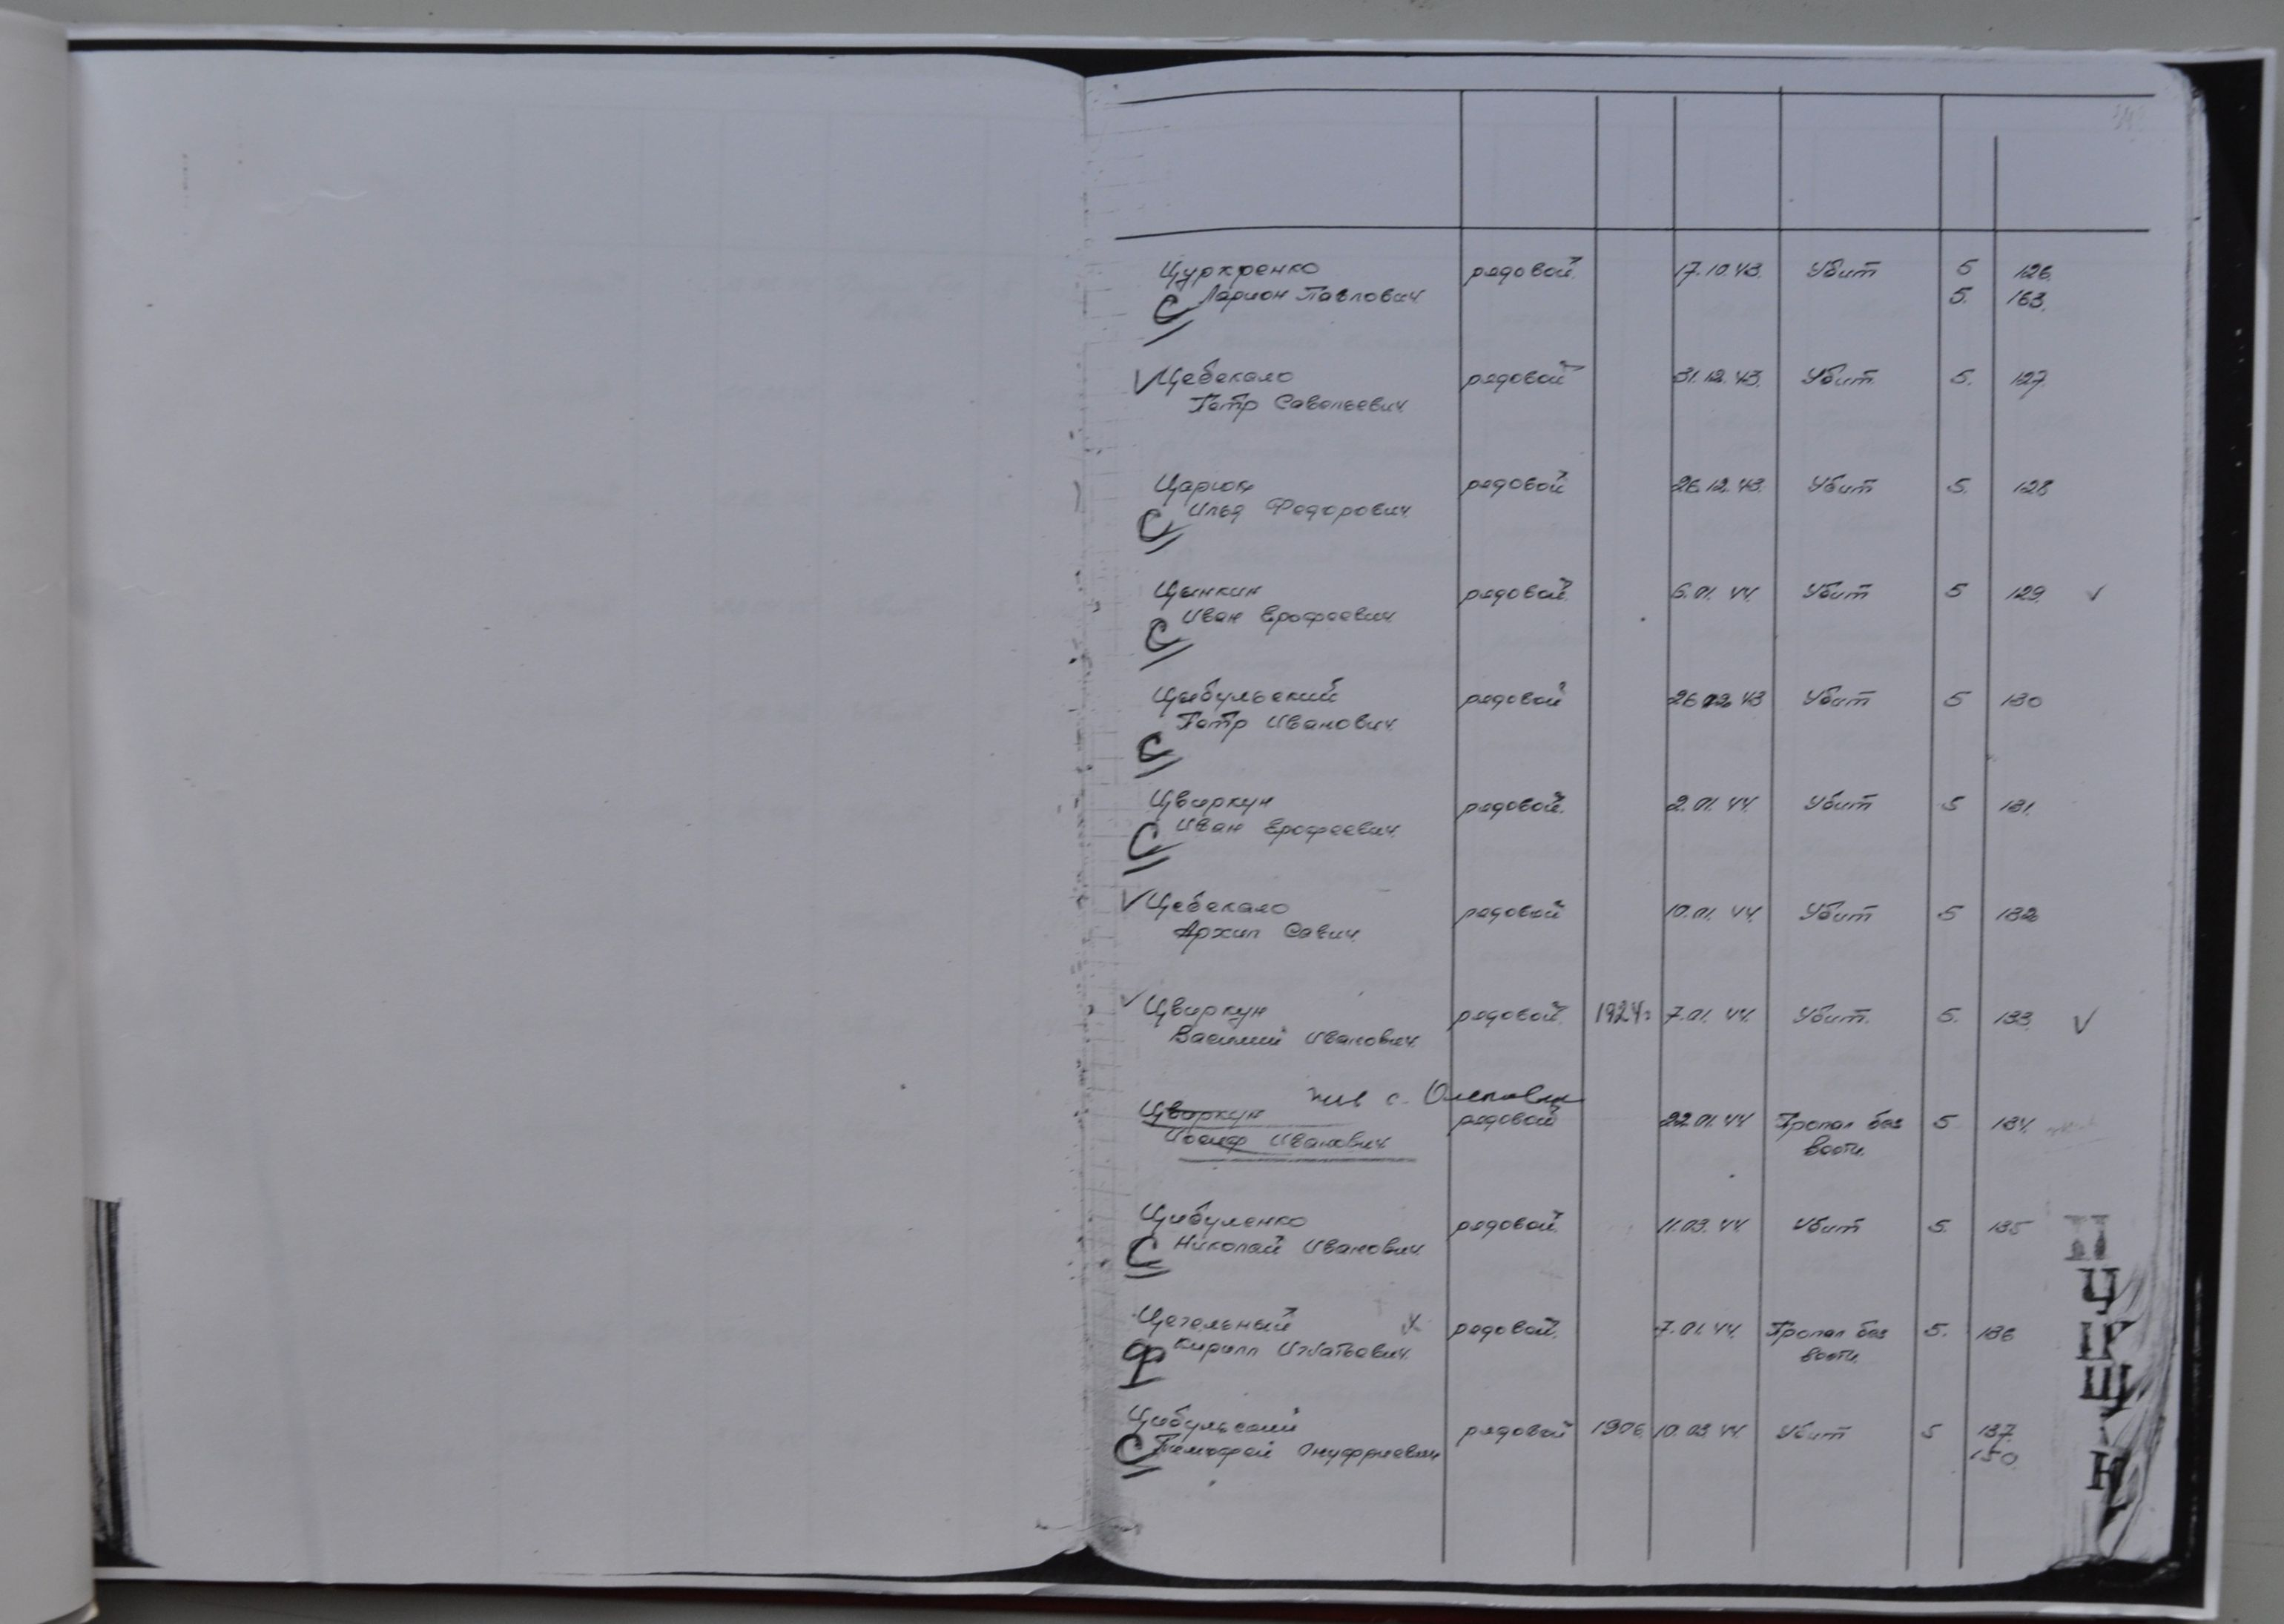 Цуркренко рядовой. 17.10.43. Убит 5 126.
С Ларион Павлович. 5. 163.
√ Цебекало рядовой 31.12.43. Убит. 5. 127.
Петр Савельевич.
Царюк рядовой 26.12.43. Убит 5. 128
С Илья Федорович.
Цынкин рядовой. 6.01.44. Убит 5 129. √
С Иван Ерофеевич.
Цыбульский рядовой 26.12.43 Убит 5 130
Петр Иванович.
С
Цвиркун рядовой. 2.01.44. Убит 5 131.
С Иван Ерофеевич.
√ Цебекало рядовой 10.01.44 Убит 5 132
Архип Савич.
√ Цвиркун рядовой. 1924г 7.01.44. Убит. 5. 133. √
Василий Иванович.
жив с.
Цвиркун рядовой 22.01.44 Пропал без 5 134.
Иосиф Иванович. вести.
Цибуленко рядовой. 11.03.44 Убит 5. 135
С Николай Иванович.
Цегельный х рядовой. 7.01.44. Пропал без 5. 136
Ф Кирилл Игнатьевич. вести.
Цибульский рядовой 1906. 10.03.44. Убит 5 137.
С Тимофей Онуфриевич 150.